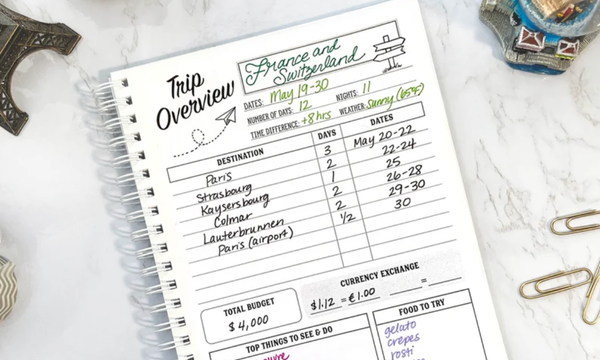 Trip Overview
France and Switzerland
DATES: May 19-30
NUMBER OF DAYS: 12 NIGHTS: 11
TIME DIFFERENCE: +8 hrs WEATHER: Sunny (65°F)
DESTINATION DAYS DATES
Paris 3 May 20-22
Strasbourg 2 22-24
Kaysersbourg 1 25
Colmar 2 26-28
Lauterbrunnen 2 29-30
Paris (airport) 1/2 30
TOTAL BUDGET
$4,000
CURRENCY EXCHANGE
$1.12 = €1.00 =
TOP THINGS TO SEE & DO
FOOD TO TRY
gelato
crepes
rosti